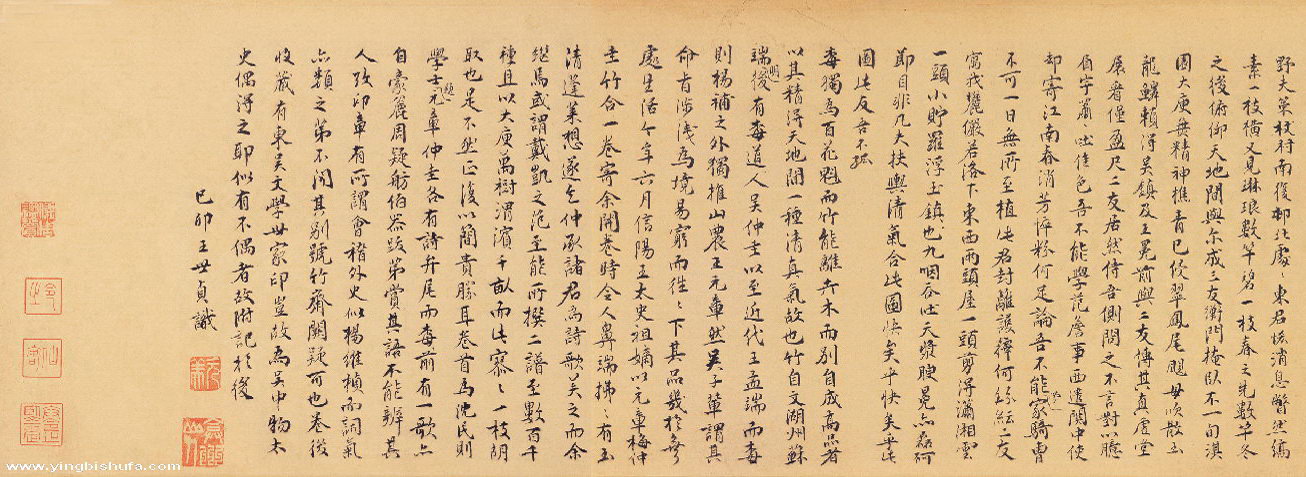 野夫草枝村南復村北處々東君拕消息瞥然縞
素一枝橫又見琳琅數竿碧一枝春之先數竿冬
之後俯仰天地間與尔成三友衡門掩臥不一旬淇
園大庾無精神樵青已佼翠鳳尾颶母吹散玉
龍鱗賴得吳鎮及王冕前與二友傳其真虛堂
展看僅盈尺二友居然侍吾側問之不言對以臆
佰字蕭吐佳色吾不能學范詹事西遣關中使
却寄江南春消芳悴粉何足論吾不能家騎曹
不可一日無所至植此君封離護籜何紛紜二友
寓我驪儼若洛下東西兩頭屋一頭剪得瀟湘雲
一頭小貯羅浮玉鎮也九咽吞吐天漿腴晃也磊砢
節目非凡夫扶輿清氣合此圖快矣乎快矣乎此
圖此友吾不孤
毒獨為百花魁而竹能離卉木而別自成高品者
以其稽得天地間一種清真氣故也竹自文湖州蘇
端明後有毒道人吳仲圭以至近代王孟端而毒
則楊補之外獨推山農王元章然吳子輩謂其
命旨涉淺為境易窮而往々下其品幾於無
處生活今年六月信陽王太史祖嫡以元章梅仲
圭竹合一卷寄余開卷時令人鼻端拂々有玉
清蓬萊想遂乞仲承諸君為詩歌美之而余
繼焉或謂戴凱之范至能所撰二譜至數百千
種且以大庾萬樹渭濱千畝而此寥々一枝胡
取也是不然正復以簡貴勝耳卷首為沈民則
學士題元章仲圭各有詩弁尾而毒前有一歌亦
自豪麗周疑舫伯器跋第賞其語不能辨其
人攷印章有所謂會稽外史似楊維楨而詞氣
亦類之第不聞其別號竹齋闕疑可也卷後
收藏有東吳文學世家印豈故為吳中物太
史偶得之耶似有不偶者故附記於後
己卯王世貞識
www.yingbishufa.com